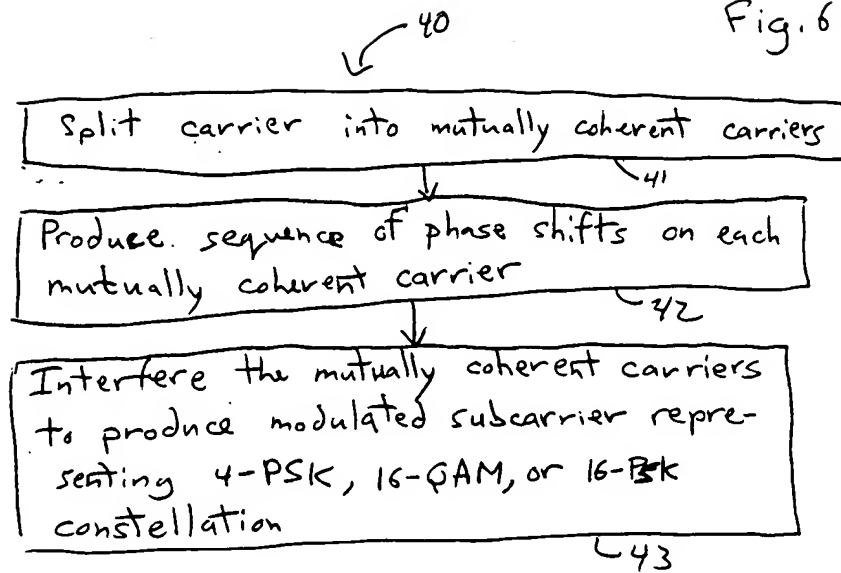 40
Fig. 6
Split carrier into mutually coherent carriers
41
Produce sequence of phase shifts on each
mutually coherent carrier
42
Interfere the mutually coherent carriers
to produce modulated subcarrier repre-
senting 4-PSK, 16-QAM, or 16-PSK
constellation
43